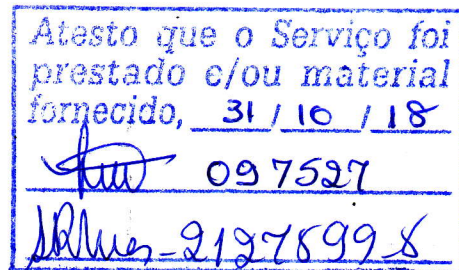 Atesto que o Serviço foi
prestado e/ou material
fornecido, 31 / 10 / 18
097527
-2127899-8